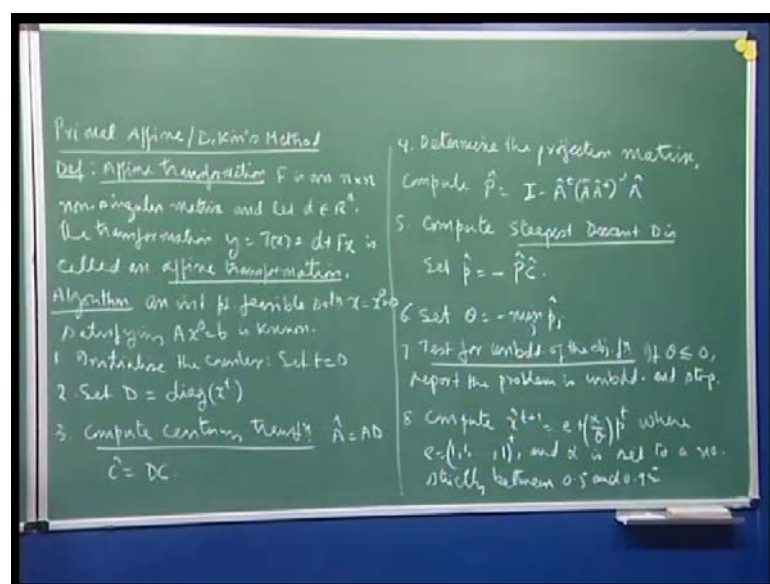 Primal Affine/Dikin's Method
Def: Affine transformation F is an n×n
non singular matrix and let d ∈ Rⁿ.
The transformation y = T(x) = d + Fx is
called an affine transformation.
Algorithm an int pt. feasible soln x = x⁰>0
satisfying Ax⁰=b is known.
1 Initialise the counter: Set t=0
2. Set D = diag(xᵗ)
3. Compute centering transfn. Â = AD
ĉ = DC
4. Determine the projection matrix.
Compute P̂ = I - Âᵗ(ÂÂᵗ)⁻¹Â
5. Compute Steepest Descent Dir
Set p̂ = - P̂ĉ.
6 Set θ = -min p̂ⱼ
7 Test for unbdd. of the obj. fn If θ ≤ 0,
report the problem is unbdd. and stop.
8 Compute x̂ᵗ⁺¹ = e + (α/θ)p̂ᵗ where
e = (1,1, ,1)ᵗ, and α is set to a no.
strictly between 0.5 and